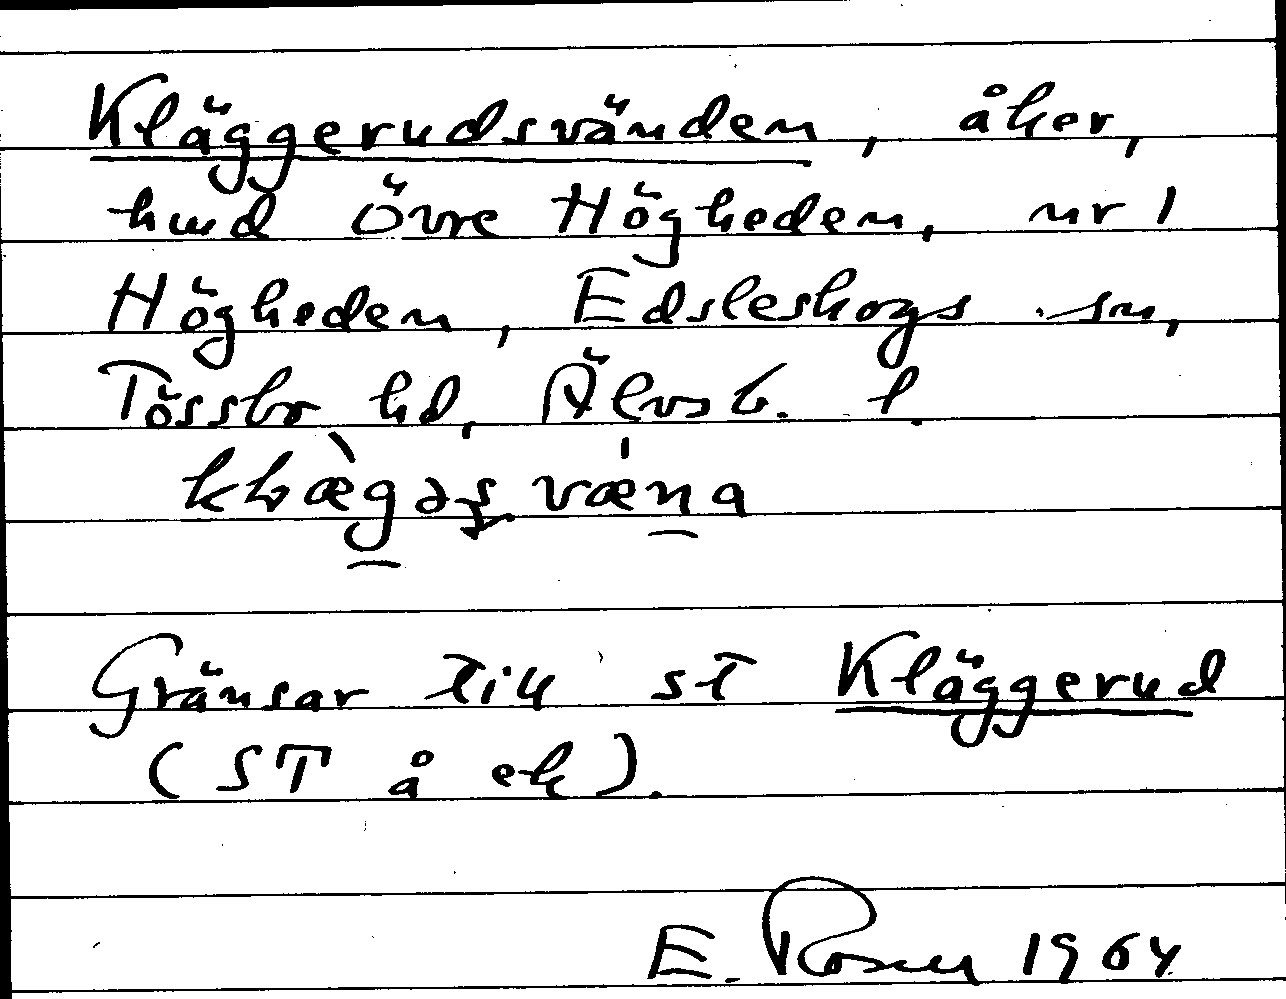 Kläggerudsvänden, åker,
hmd Övre Högheden, nr 1
Högheden, Edsleskogs sn,
Tössbo hd, Älvsb. l.
Gränsar till st Kläggerud
(ST å ek).
E. Rosen 1964